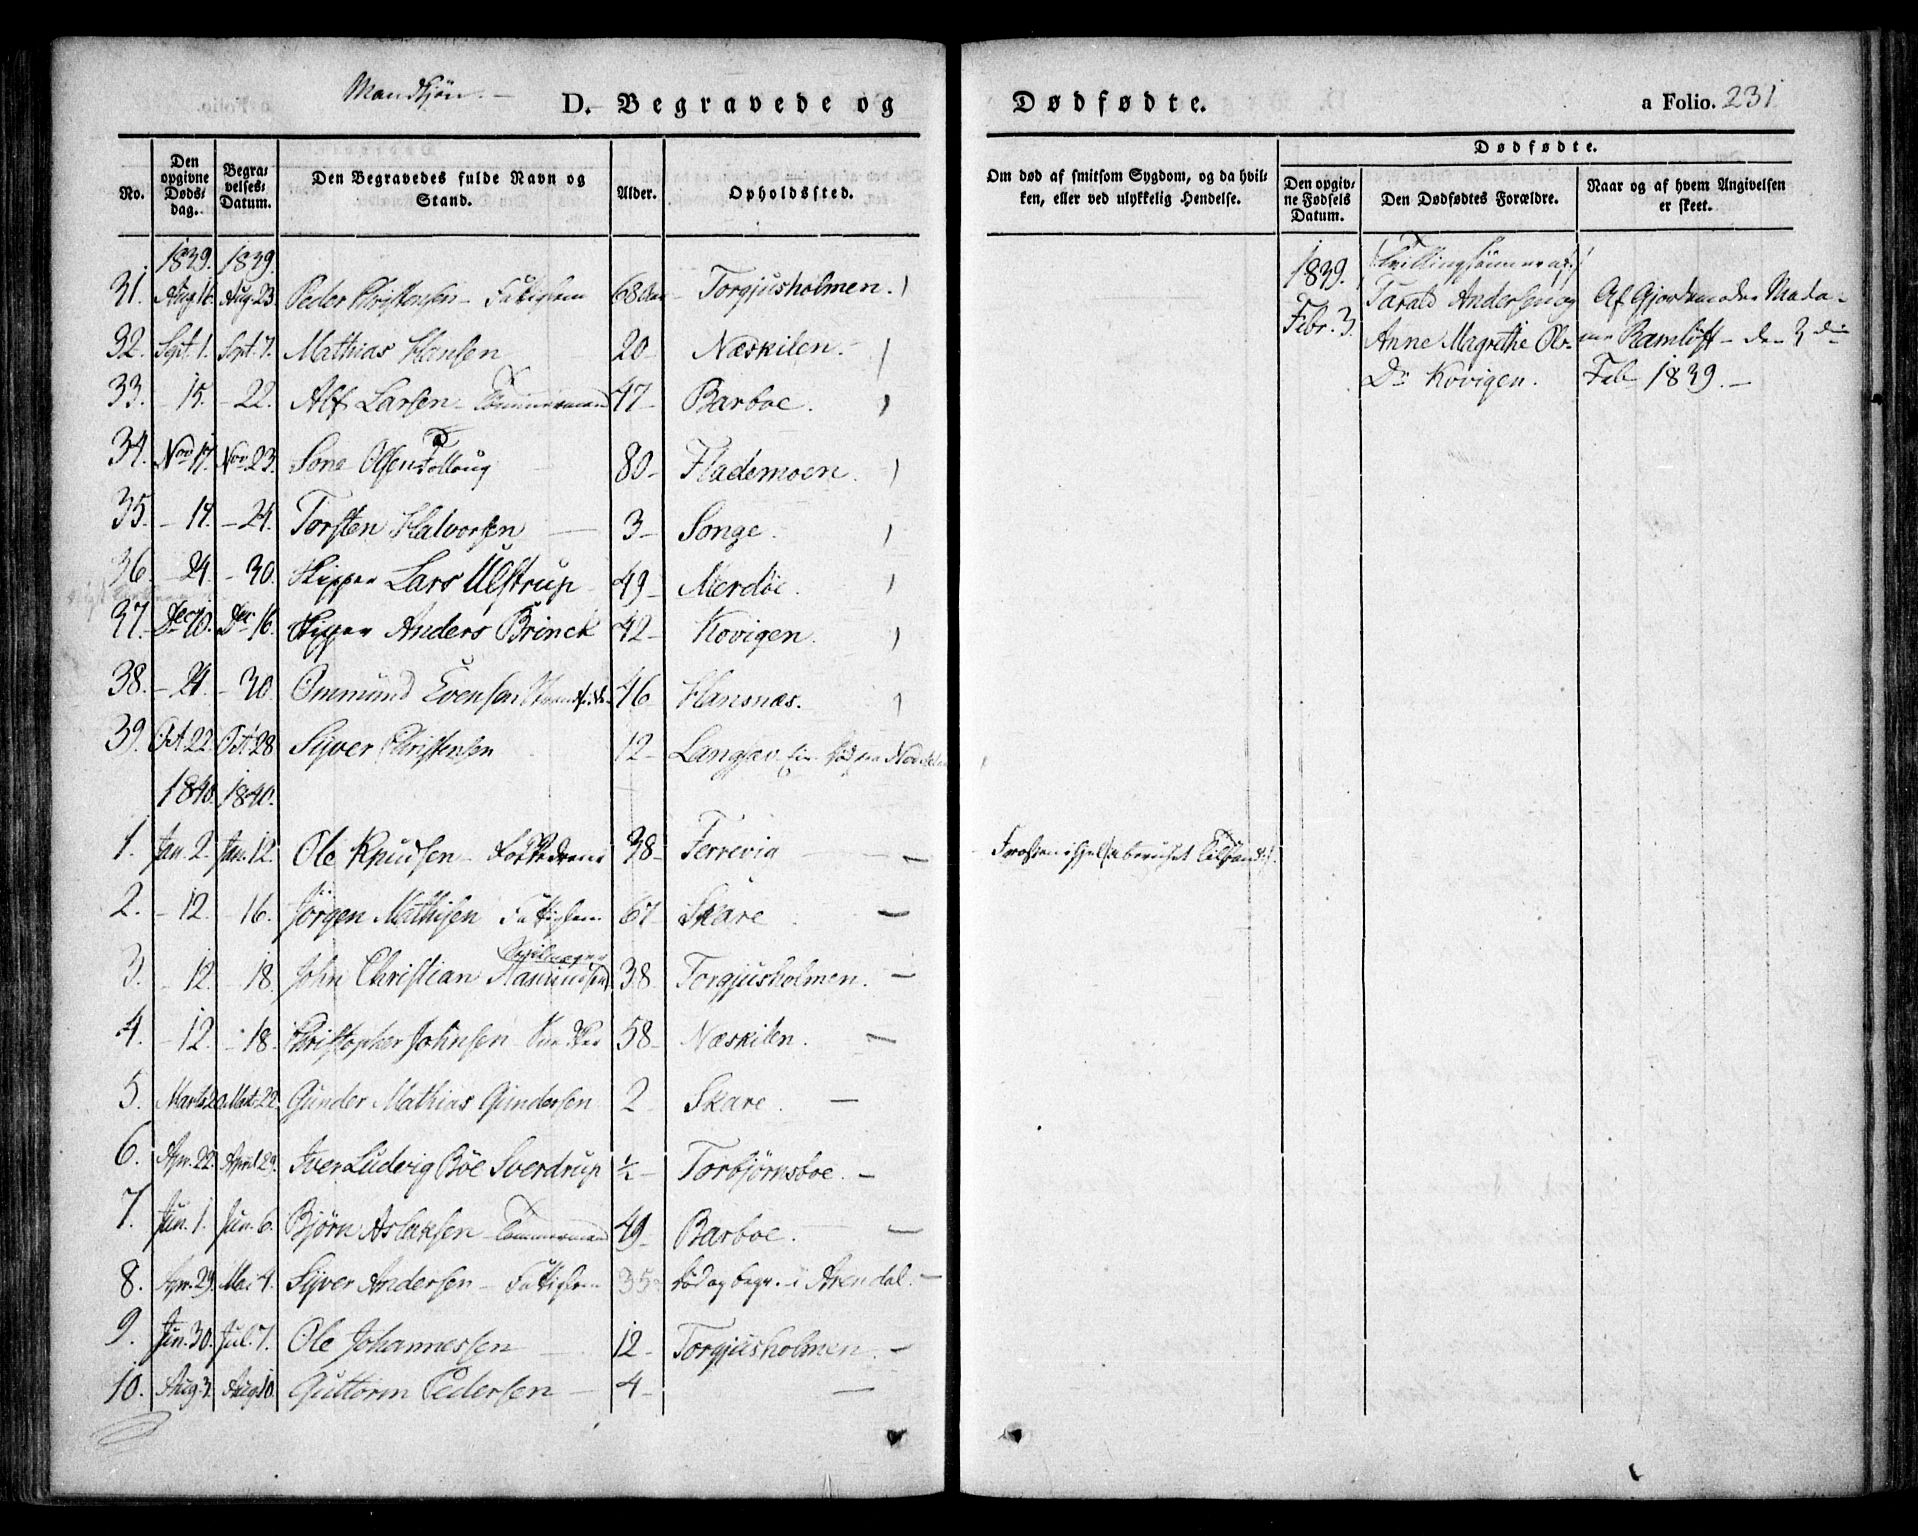 Mandkjøn. –
D. Begravede og Dødfødte.
a Folio. 231
No.
Den opgivne Døds-dag.
Begra-velses-Datum.
Den Begravedes fulde Navn og Stand.
Alder.
Opholdssted.
Om død af smitsom Sygdom, og da hvil-ken, eller ved ulykkelig Hendelse.
Dødfødte.
Den opgiv-ne Fødsels Datum.
Den Dødfødtes Forældre.
Naar og af hvem Angivelsen er skeet.
1839. 1839.
31. Aug. 16. Aug. 23 Peder Christensen – Fattiglem 68 Aar – Torgjusholmen.
32. Sept. 1. Sept. 7. Mathias Hansen 20 – Næskilen.
33. – 15. – 22. Alf Larsen – Tømmermand 47 – Barboe.
34. Nov 17. Nov. 23. Sone Olsen 80 – Flademoen.
35. – 17. – 24. Torsten Halvorsen – 3 – Songe.
36. – 24. – 30. Skipper Lars Ulstrup 49 – Merdöe.
37. Dec 10. Dec 16. Skipper Anders Brinck 42 – Kovigen.
38. – 24. – 30. Ommund Evensen 46 Hansnæs.
39. Oct 22. Oct 28 Syver Christensen 12 – Langsæv
1840. 1840.
1. Jan. 2. Jan. 12. Ole Knudsen – 38 – Ferrevig –
2. – 12. – 16. Jörgen Mathisen Fattiglem 67 – Skare –
3. – 12. – 18. John Christian 38 Torgjusholmen. –
4. – 12. – 18. Christopher Johnsen 58 – Næskilen. –
5. Marts 20 Mart. 22. Gunder Mathias Gundersen 2 – Skare. –
6. Apr. 22. April 29. Iver Ludvig Böe Sverdrup ½ – Torbjörnsboe. –
7. Jun. 1. Jun. 6. Björn Aslaksen – Tömmermand 49 – Barboe. –
8. Apr. 29. Mai 4. Syver Andersen – Fattiglem 35 – död og begr. i Arendal. –
9. Jun. 30. Jul. 7. Ole Johannessen – 12 – Torgjusholmen. –
10. Aug 3. Aug 10. Guttorm Pedersen – 4 – –
1839.
Febr. 3.
Tvillingsönner af
Tarald Andersen og
Anne Magrethe Ols-
Dr Kovigen.
Af Gjordemoder Mada-
me Ramlöft – den 3die
Feb 1839. –